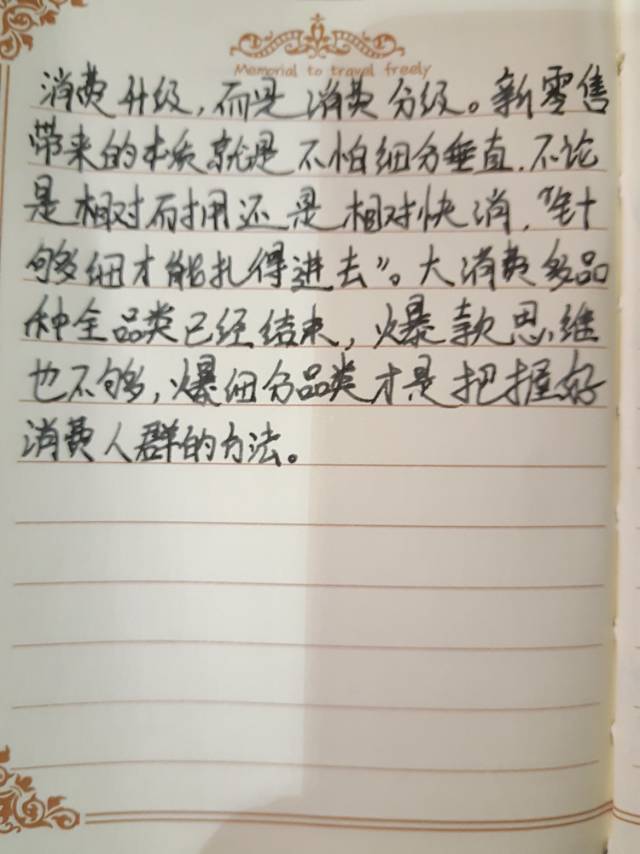 Memorial to travel freely
消费升级，而是消费分级。新零售
带来的本质就是不怕细分垂直.不论
是相对而拥还是相对快消，“针
够细才能扎得进去”。大消费多品
种全品类已经结束，爆款思维
也不够，爆细分品类才是把握好
消费人群的方法。